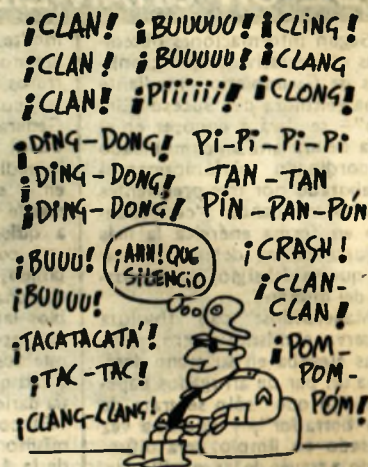 ¡CLAN! ¡BUUUUU! ¡CLING!
¡CLAN! ¡BUUUUU! ¡CLANG
¡CLAN! ¡PIIIIII! ¡CLONG!
¡DING-DONG! PI-PI-PI-PI
¡DING-DONG! TAN-TAN
¡DING-DONG! PIN-PAN-PÚN
¡BUUU!
¡BUUUU!
¡AHH! QUE
SILENCIO
¡CRASH!
¡CLAN-
CLAN!
¡TACATACATÁ!
¡TAC-TAC!
¡CLANG-CLANG!
¡POM-
POM-
POM!